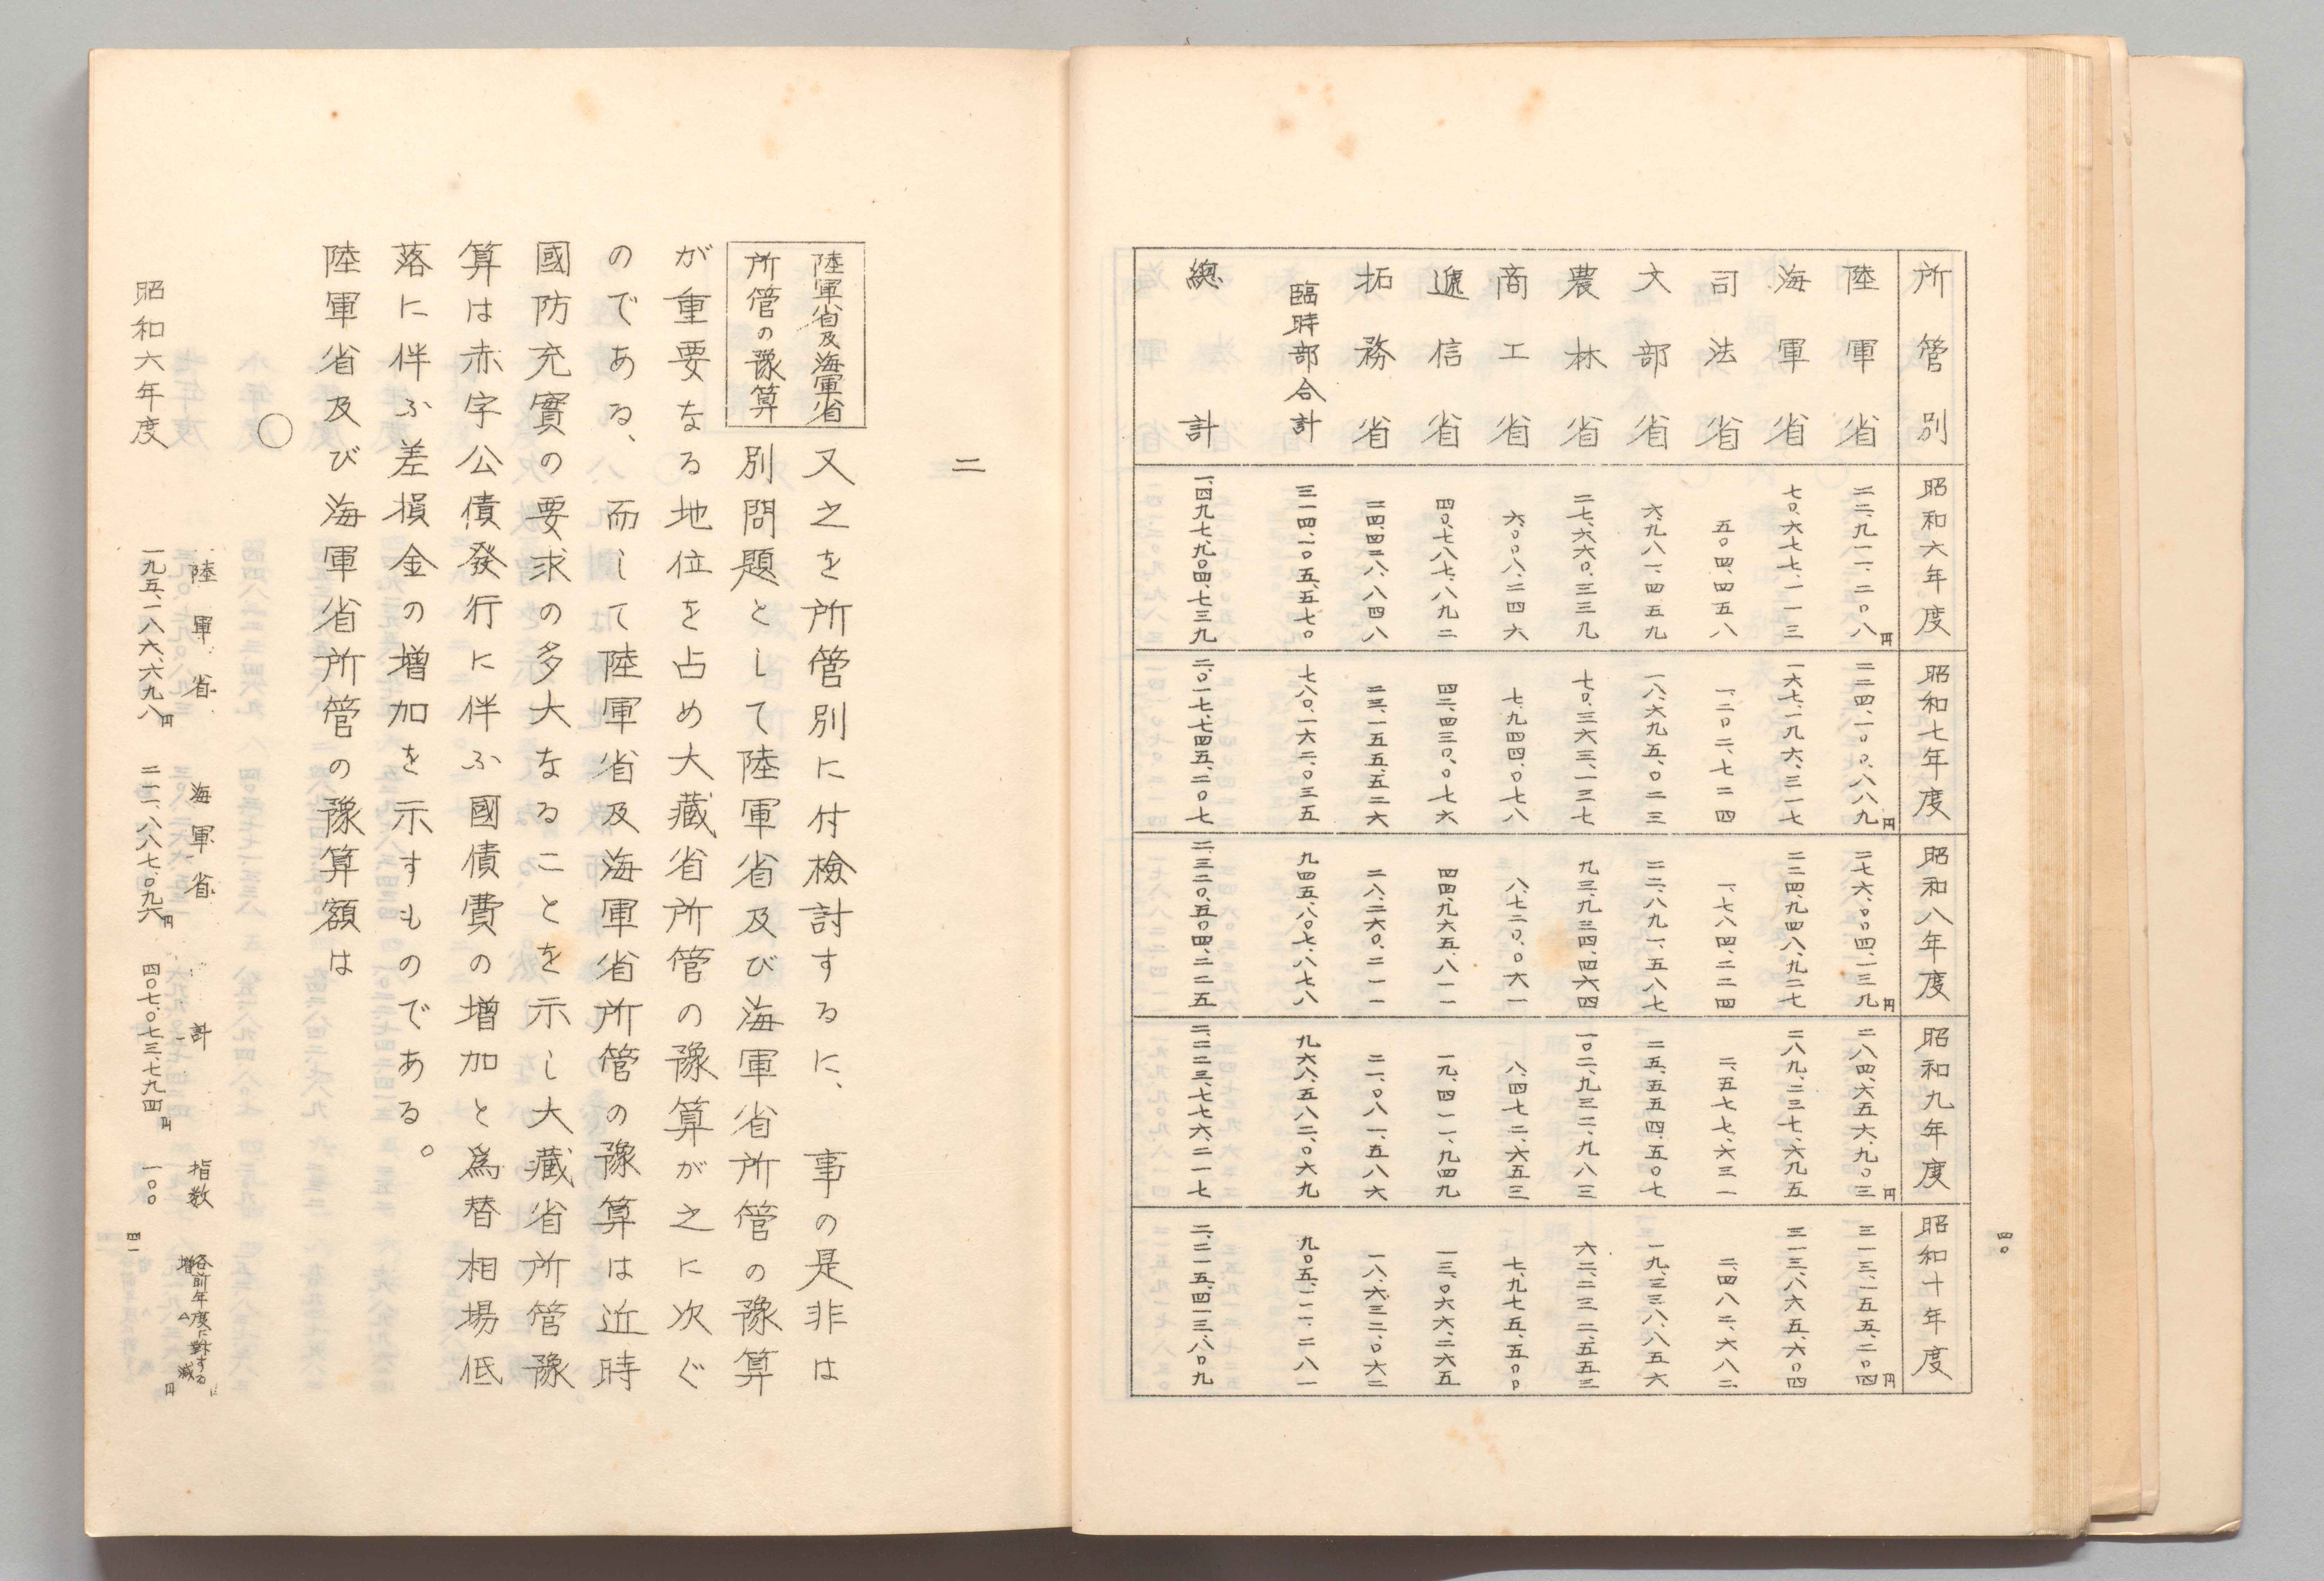 四〇
所管別 昭和六年度 昭和七年度 昭和八年度 昭和九年度 昭和十年度
陸軍省 二二、九一一、二〇八円 二二四、一〇〇、八八九円 二七六、〇〇四、一三九円 二八四、六五六、九〇三円 三一三、一五五、二〇四円
海軍省 七〇、六七七、一一三 一六七、一九六、三一七 二二四、九四八、九二七 二八九、二三七、六九五 三一三、八六五、六〇四
司法省 五〇四、四五八 一、二〇二、七二四 一、七八四、二二四 二、五七七、六三一 二、四八二、六八二
文部省 六、九八一、四五九 一八、六九五、〇二三 二二、八九一、五八七 二五、五五四、五〇七 一九、三三八、八五六
農林省 二七、六六〇、三三九 七〇、三六三、一三七 九三、九三四、四六四 一〇二、九三二、九八三 六二、二三二、五五三
商工省 六、〇〇八、二四六 七、九四四、〇七八 八、七二〇、〇六一 八、四七二、六五三 七、九七五、五〇〇
遞信省 四〇、七八七、八九二 四二、四三〇、〇七六 四四、九六五、八一一 一九、四一一、九四九 一三、〇六六、二六五
拓務省 二四、四二八、八四八 二三、一五五、五二六 二八、二六〇、二一一 二一、〇八一、五八六 一八、六三二、〇六二
臨時部合計 三一四、一〇五、五七〇 七八〇、一六二、〇三五 九四五、八〇七、八七八 九六八、五八二、〇六九 九〇五、一一一、二八一
總計 一、四九七、九〇四、七三九 二、〇一七、七四五、二〇七 二、三二〇、五〇四、二二五 二、二二三、七七六、二一七 二、二一五、四一三、八〇九
二
陸軍省及海軍省
所管の豫算
又之を所管別に付檢討するに、事の是非は
別問題として陸軍省及び海軍省所管の豫算
が重要なる地位を占め大藏省所管の豫算が之に次ぐ
のである、而して陸軍省及海軍省所管の豫算は近時
國防充實の要求の多大なることを示し大藏省所管豫
算は赤字公債發行に伴ふ國債費の増加と爲替相場低
落に伴ふ差損金の増加を示すものである。
陸軍省及び海軍省所管の豫算額は
○
陸軍省 海軍省 計 指数 各前年度に對する増△減
昭和六年度 一九五、一八六、六九八円 二一一、八八七、〇九六円 四〇七、〇七三、七九四円 一〇〇 円
四一